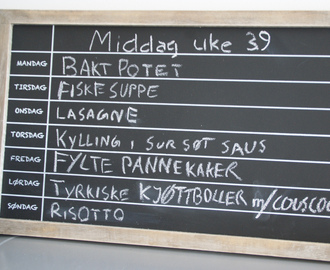 Middag uke 39
MANDAG BAKT POTET
TIRSDAG FISKESUPPE
ONSDAG LASAGNE
TORSDAG KYLLING I SUR SØT SAUS
FREDAG FYLTE PANNEKAKER
LØRDAG TYRKISKE KJØTTBOLLER m/COUSCOU
SØNDAG RISOTTO